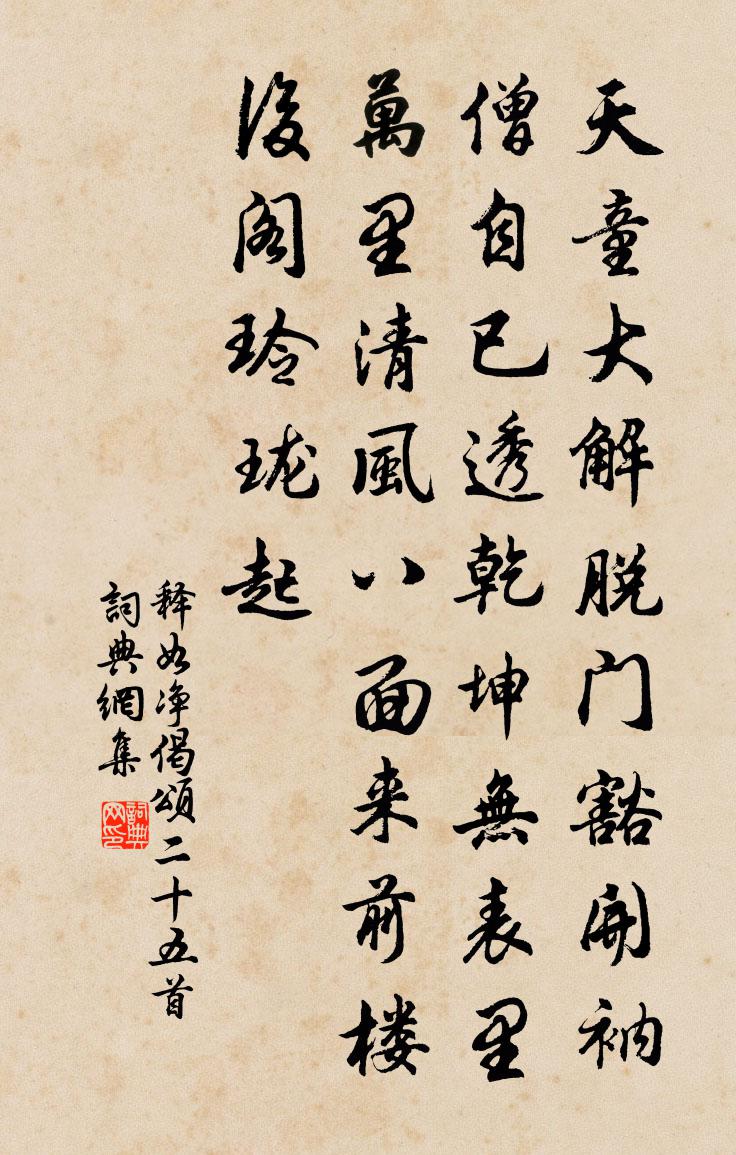 天童大解脱门豁開衲
僧自己透乾坤無表里
萬里清風八面来前楼
後阁玲珑起
释如净偈頌二十五首
詞典網集
詞典网印